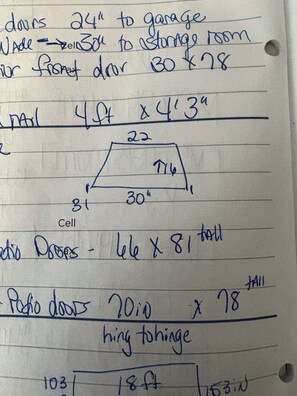 doors 24" to garage
Wade → 30" to storage room
front door 30 x 78
4 ft x 4' 3"
22
↑16
31 30"
Cell
Doors - 66 x 81 tall
- Patio doors 70in x 78 tall
hing to hinge
103 18 ft 153 in